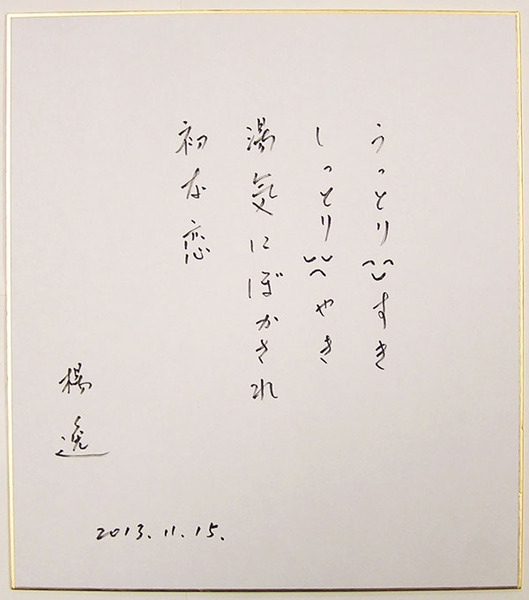 うっとり すき
しっとり やき
湯気にぼかされ
初な恋
楊逸
2013.11.15.